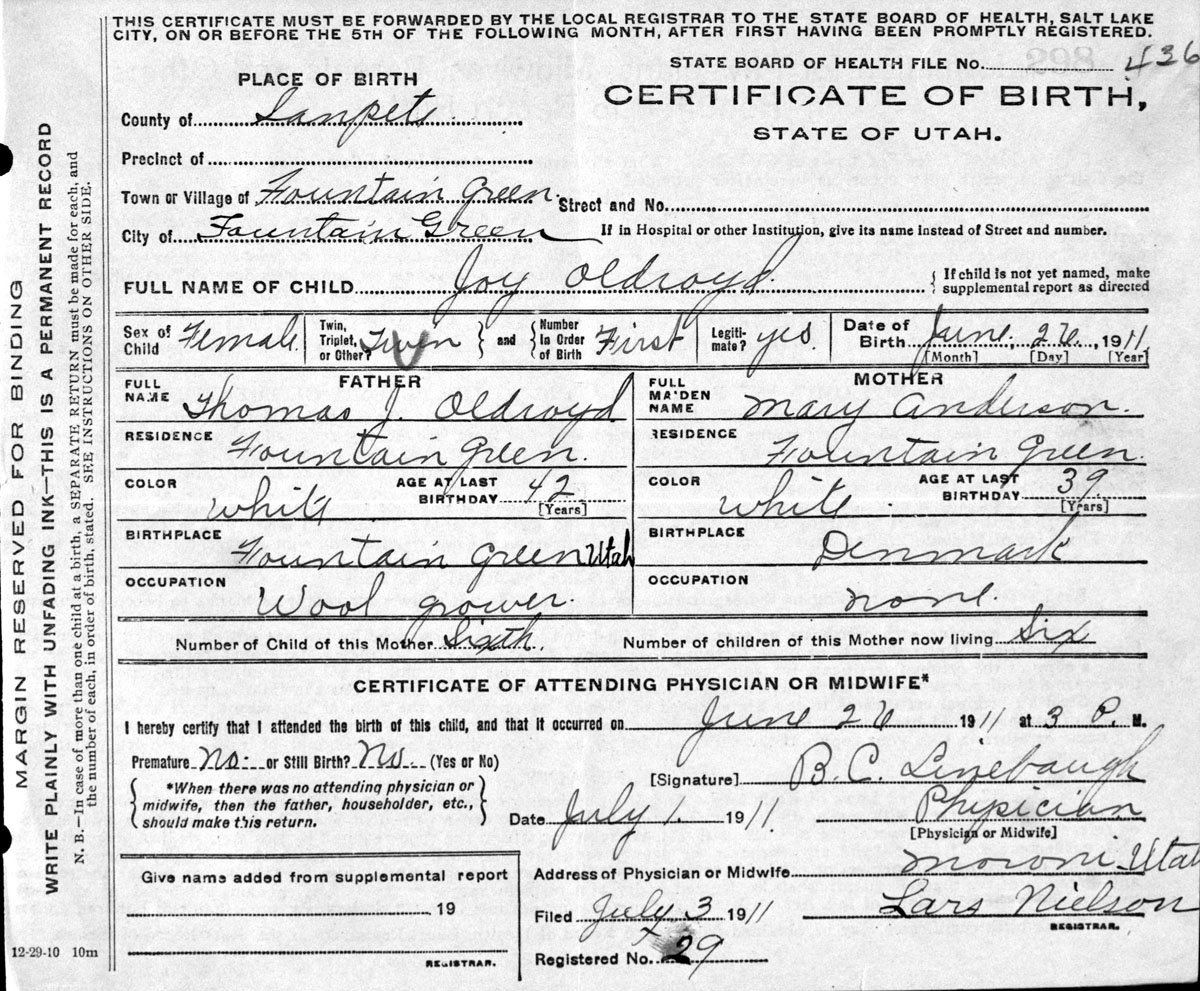 THIS CERTIFICATE MUST BE FORWARDED BY THE LOCAL REGISTRAR TO THE STATE BOARD OF HEALTH, SALT LAKE
CITY, ON OR BEFORE THE 5TH OF THE FOLLOWING MONTH, AFTER FIRST HAVING BEEN PROMPTLY REGISTERED.
MARGIN RESERVED FOR BINDING
WRITE PLAINLY WITH UNFADING INK—THIS IS A PERMANENT RECORD
N. B.—In case of more than one child at a birth, a SEPARATE RETURN must be made for each, and
the number of each, in order of birth, stated. SEE INSTRUCTIONS ON OTHER SIDE.
STATE BOARD OF HEALTH FILE No. 436
PLACE OF BIRTH
CERTIFICATE OF BIRTH,
STATE OF UTAH.
County of Sanpete
Precinct of
Town or Village of Fountain Green. Street and No.
City of Fountain Green If in Hospital or other Institution, give its name instead of Street and number.
FULL NAME OF CHILD Joy Oldroyd. { If child is not yet named, make
supplemental report as directed
Sex of Child Female. Twin, Triplet, or Other? Twin } and { Number In Order of Birth First Legiti- mate? yes. Date of Birth June, 26, 1911,
[Month] [Day] [Year]
FATHER MOTHER
FULL NAME Thomas J. Oldroyd FULL MAIDEN NAME Mary Anderson.
RESIDENCE Fountain Green. RESIDENCE Fountain Green.
COLOR White AGE AT LAST BIRTHDAY 42 [Years] COLOR White AGE AT LAST BIRTHDAY 39 [Years]
BIRTHPLACE Fountain Green Utah BIRTHPLACE Denmark
OCCUPATION Wool grower. OCCUPATION none.
Number of Child of this Mother Sixth. Number of children of this Mother now living Six
CERTIFICATE OF ATTENDING PHYSICIAN OR MIDWIFE*
I hereby certify that I attended the birth of this child, and that it occurred on June 26 1911 at 3 P. M.
Premature No. or Still Birth? No. (Yes or No)
[Signature] B. C. Linebaugh
{ *When there was no attending physician or
midwife, then the father, householder, etc.,
should make this return. }
Date July 1. 1911 Physician
[Physician or Midwife]
Address of Physician or Midwife Moroni Utah
Give name added from supplemental report
19
REGISTRAR.
Filed July 3 1911 Lars Nielson
REGISTRAR.
Registered No. 29
12-29-10 10m